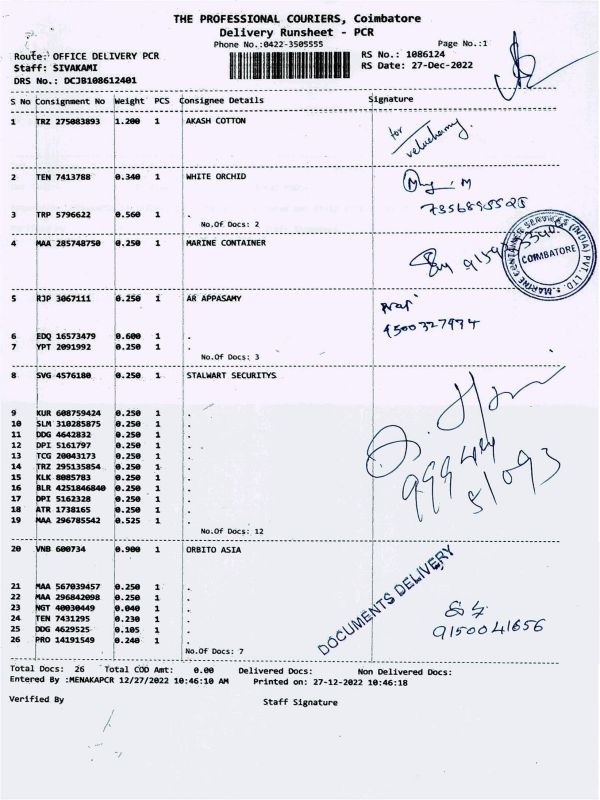 THE PROFESSIONAL COURIERS, Coimbatore
Delivery Runsheet - PCR
Phone No.:0422-3505555
Page No.:1
Route: OFFICE DELIVERY PCR
RS No.: 1086124
Staff: SIVAKAMI
RS Date: 27-Dec-2022
DRS No.: DCJB108612401
S No Consignment No Weight PCS Consignee Details Signature
1 TRZ 275083893 1.200 1 AKASH COTTON
for
veluchamy
2 TEN 7413788 0.340 1 WHITE ORCHID
3 TRP 5796622 0.560 1 .
No.Of Docs: 2
4 MAA 285748750 0.250 1 MARINE CONTAINER
MARINE CONTAINER SERVICES (INDIA) PVT. LTD.
COIMBATORE
5 RJP 3067111 0.250 1 AR APPASAMY
9500327994
6 EDQ 16573479 0.600 1 .
7 YPT 2091992 0.250 1 .
No.Of Docs: 3
8 SVG 4576180 0.250 1 STALWART SECURITYS
9 KUR 608759424 0.250 1 .
10 SLM 310285875 0.250 1 .
11 DDG 4642832 0.250 1 .
12 DPI 5161797 0.250 1 .
13 TCG 20043173 0.250 1 .
14 TRZ 295135854 0.250 1 .
15 KLK 8085783 0.250 1 .
16 BLR 4251846840 0.250 1 .
17 DPI 5162328 0.250 1 .
18 ATR 1738165 0.250 1 .
19 MAA 296785542 0.525 1 .
99944
51093
No.Of Docs: 12
20 VNB 600734 0.900 1 ORBITO ASIA
DOCUMENTS DELIVERY
21 MAA 567039457 0.250 1 .
22 MAA 296842098 0.250 1 .
23 NGT 40030449 0.040 1 .
24 TEN 7431295 0.230 1 .
25 DDG 4629525 0.105 1 .
26 PRO 14191549 0.240 1 .
9150041656
No.Of Docs: 7
Total Docs: 26 Total COD Amt: 0.00 Delivered Docs: Non Delivered Docs:
Entered By :MENAKAPCR 12/27/2022 10:46:10 AM Printed on: 27-12-2022 10:46:18
Verified By Staff Signature